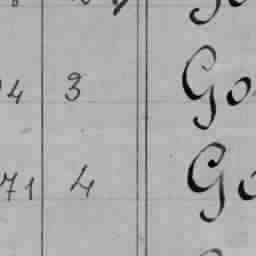 4 3 Go
71 4 Go